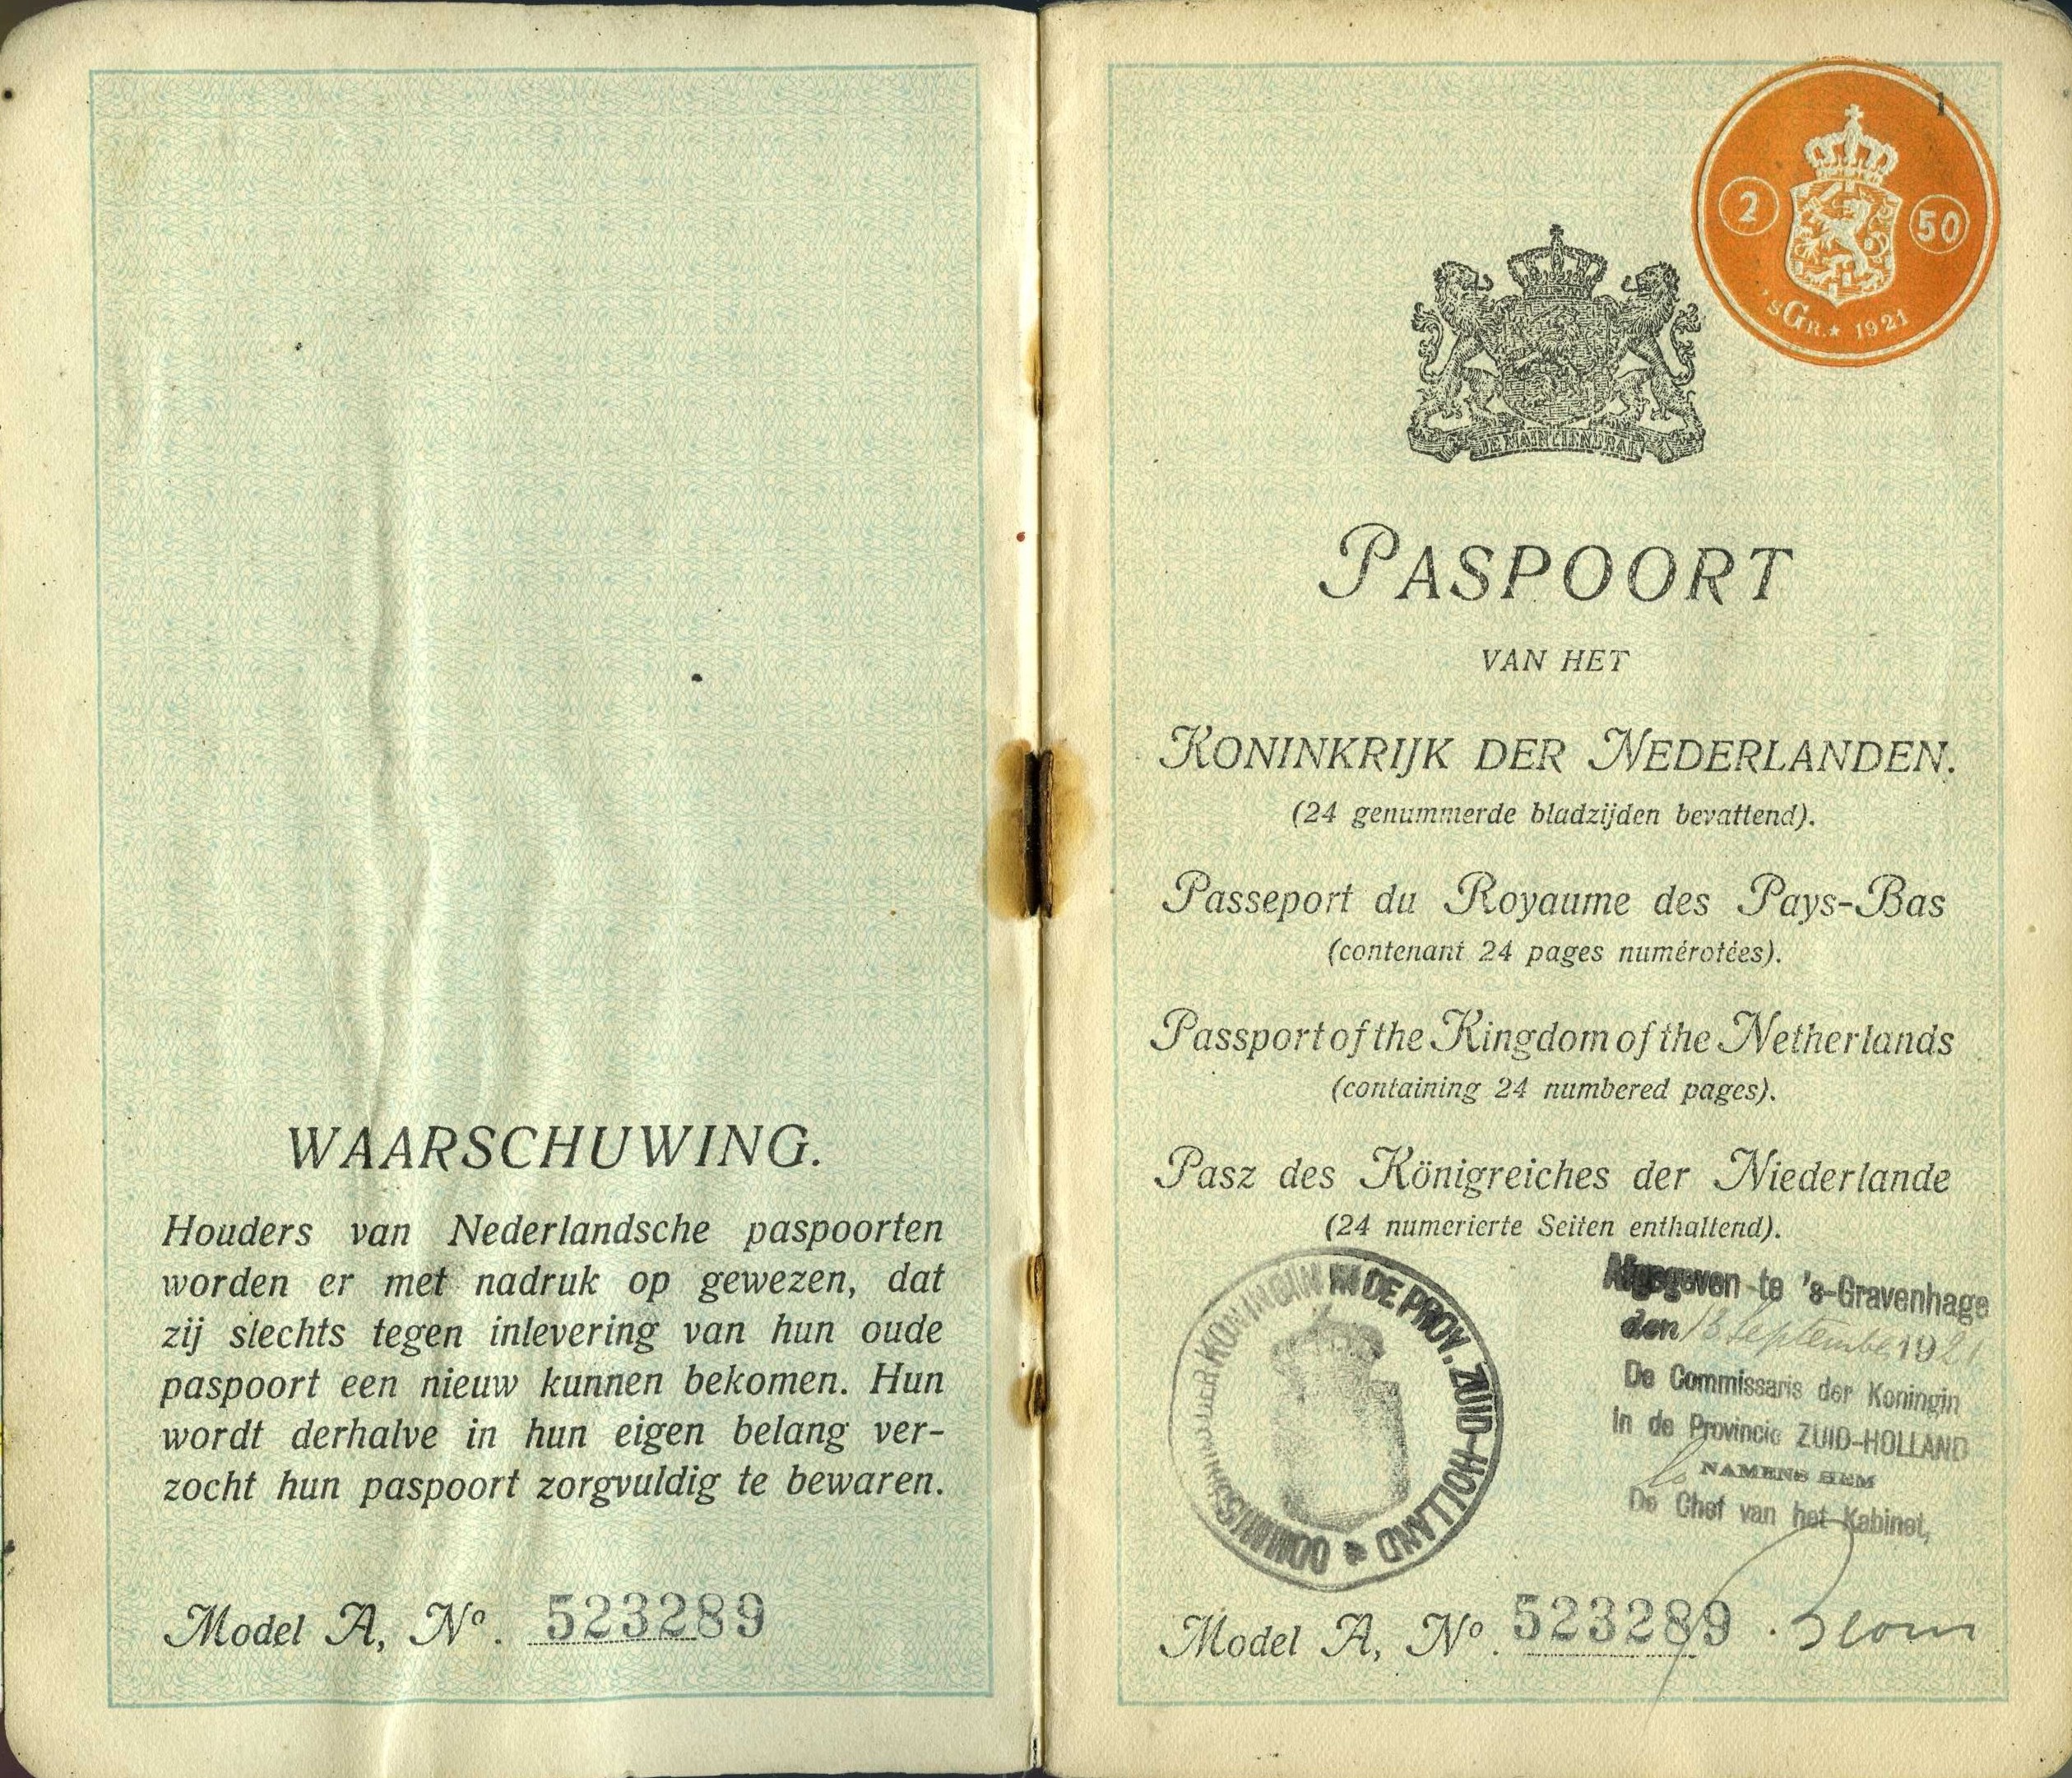 WAARSCHUWING.
Houders van Nederlandsche paspoorten
worden er met nadruk op gewezen, dat
zij slechts tegen inlevering van hun oude
paspoort een nieuw kunnen bekomen. Hun
wordt derhalve in hun eigen belang ver-
zocht hun paspoort zorgvuldig te bewaren.
Model A, No. 523289
1
2 50
'sGR.★ 1921
JE MAINTIENDRAI
PASPOORT
VAN HET
KONINKRIJK DER NEDERLANDEN.
(24 genummerde bladzijden bevattend).
Passeport du Royaume des Pays-Bas
(contenant 24 pages numérotées).
Passport of the Kingdom of the Netherlands
(containing 24 numbered pages).
Pasz des Königreiches der Niederlande
(24 numerierte Seiten enthaltend).
COMMISSARIS DER KONINGIN IN DE PROV. ZUID-HOLLAND
Afgegeven te 's-Gravenhage
den 13 September 1921
De Commissaris der Koningin
In de Provincie ZUID-HOLLAND
NAMENS HEM
De Chef van het Kabinet,
Model A, No. 523289